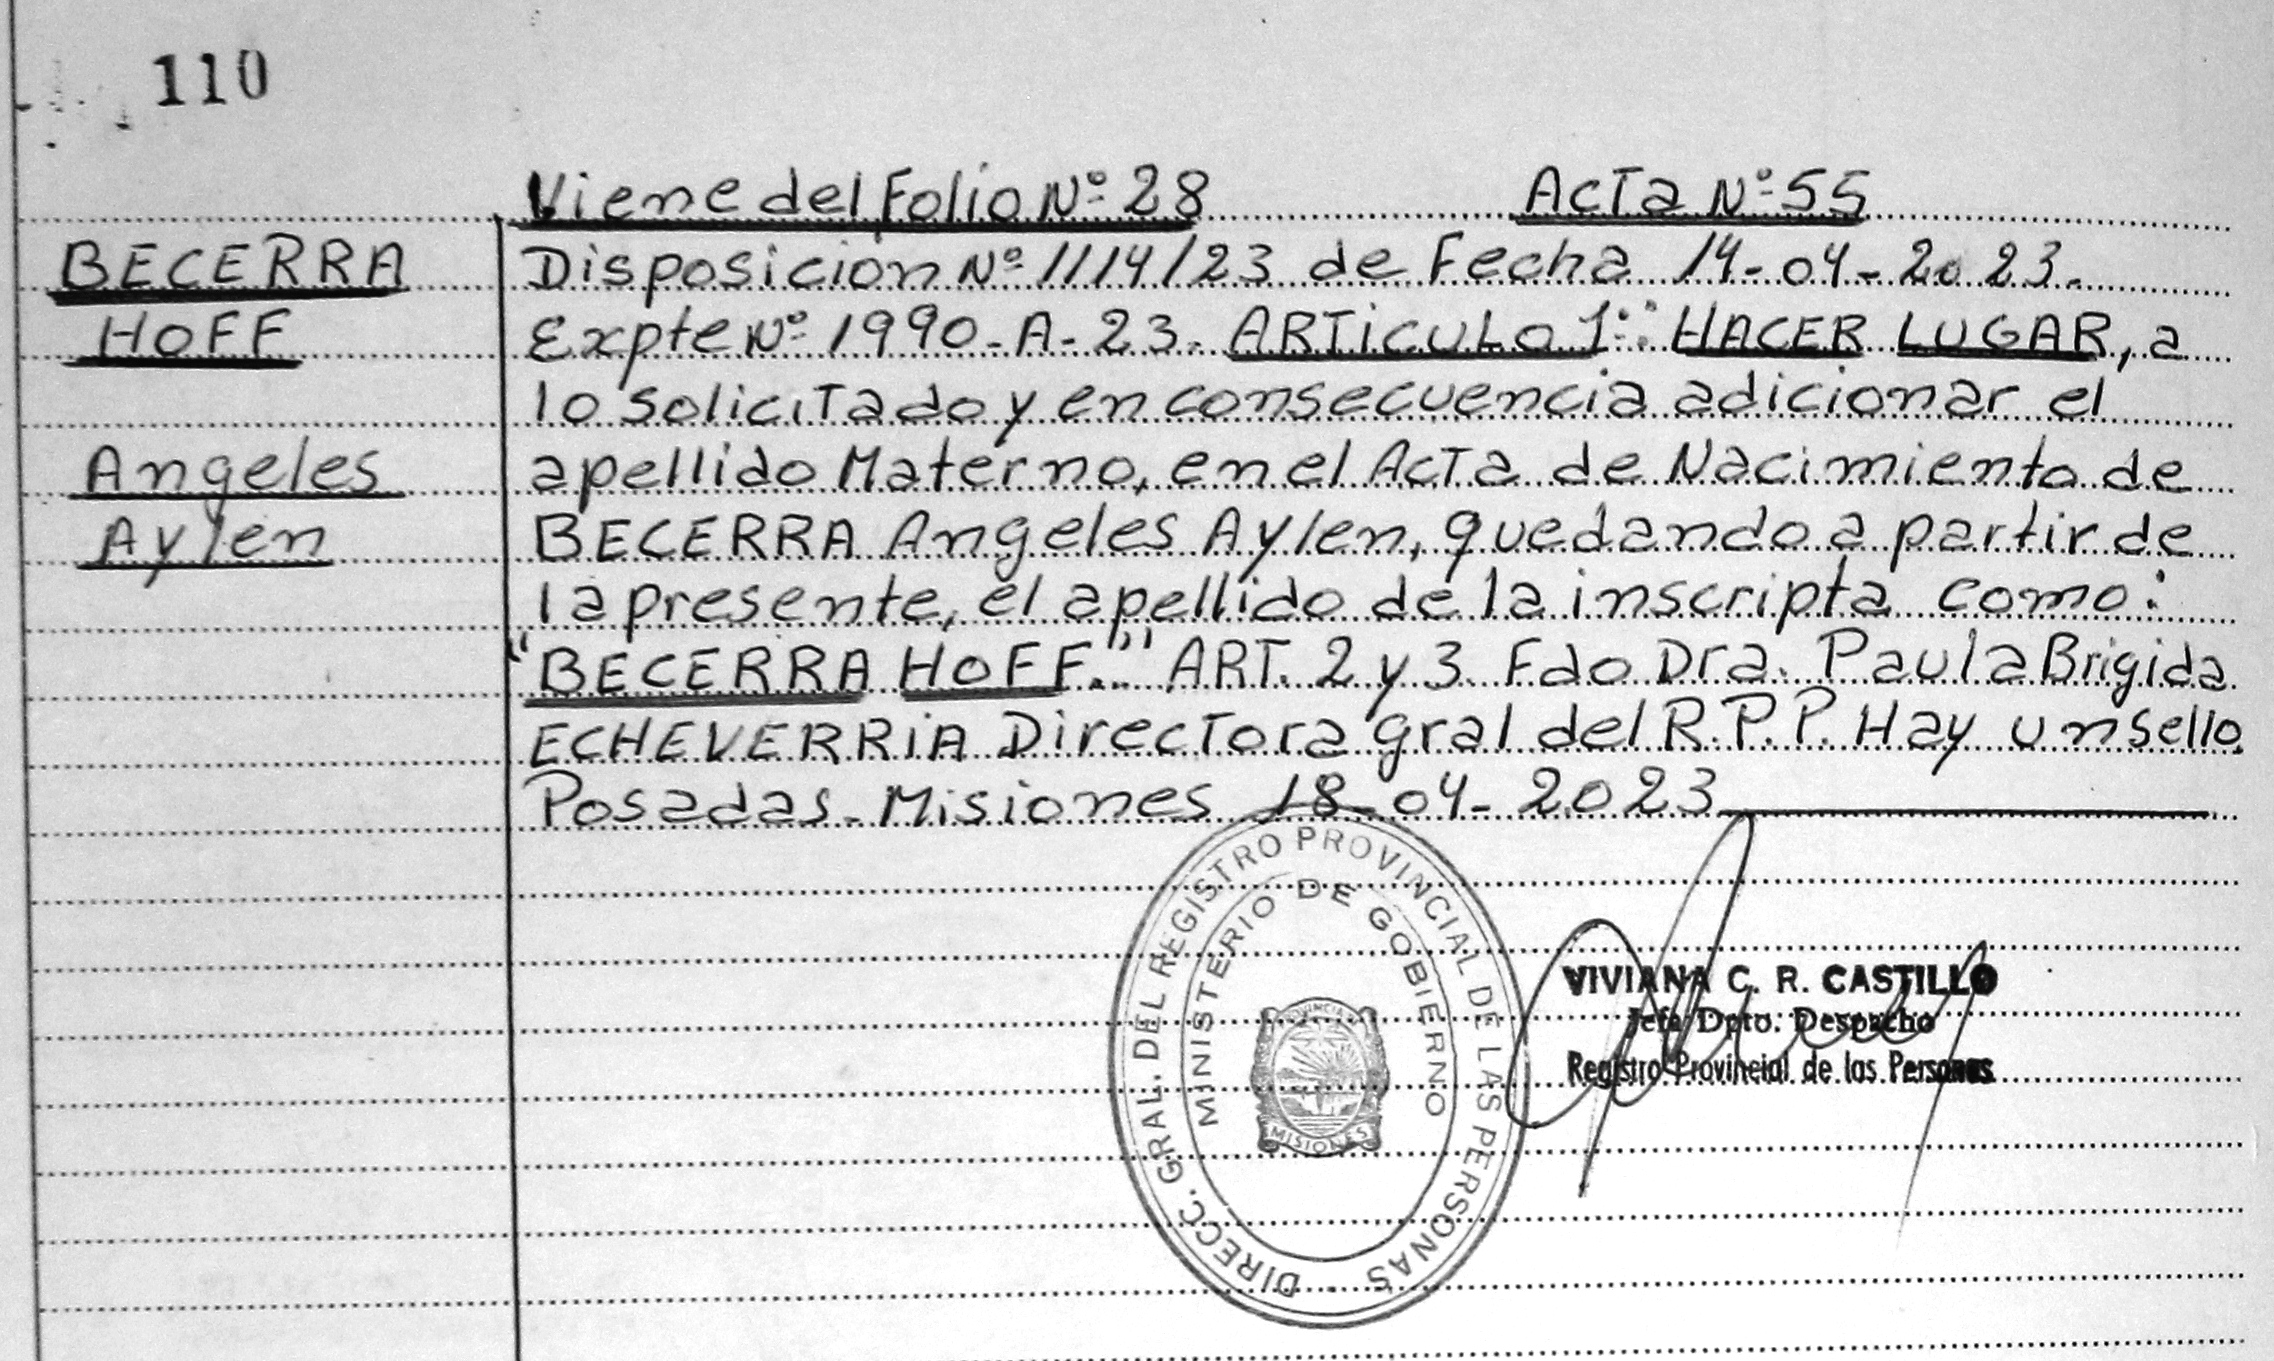 110
Viene del Folio Nº 28 Acta Nº 55
BECERRA
HOFF
Angeles
Aylen
Disposición Nº 1114/23 de Fecha 14-04-2023.
Expte Nº 1990-A-23. ARTICULO 1º: HACER LUGAR, a
lo solicitado y en consecuencia adicionar el
apellido Materno, en el Acta de Nacimiento de
BECERRA Angeles Aylen, quedando a partir de
la presente, el apellido de la inscripta como:
"BECERRA HOFF." ART. 2 y 3. Fdo Dra. Paula Brigida
ECHEVERRIA Directora gral del R.P.P. Hay un sello.
Posadas-Misiones 18-04-2023
DIRECC. GRAL. DEL REGISTRO PROVINCIAL DE LAS PERSONAS
MINISTERIO DE GOBIERNO
PROVINCIA
MISIONES
VIVIANA C. R. CASTILLO
Jefa Dpto. Despacho
Registro Provincial de las Personas